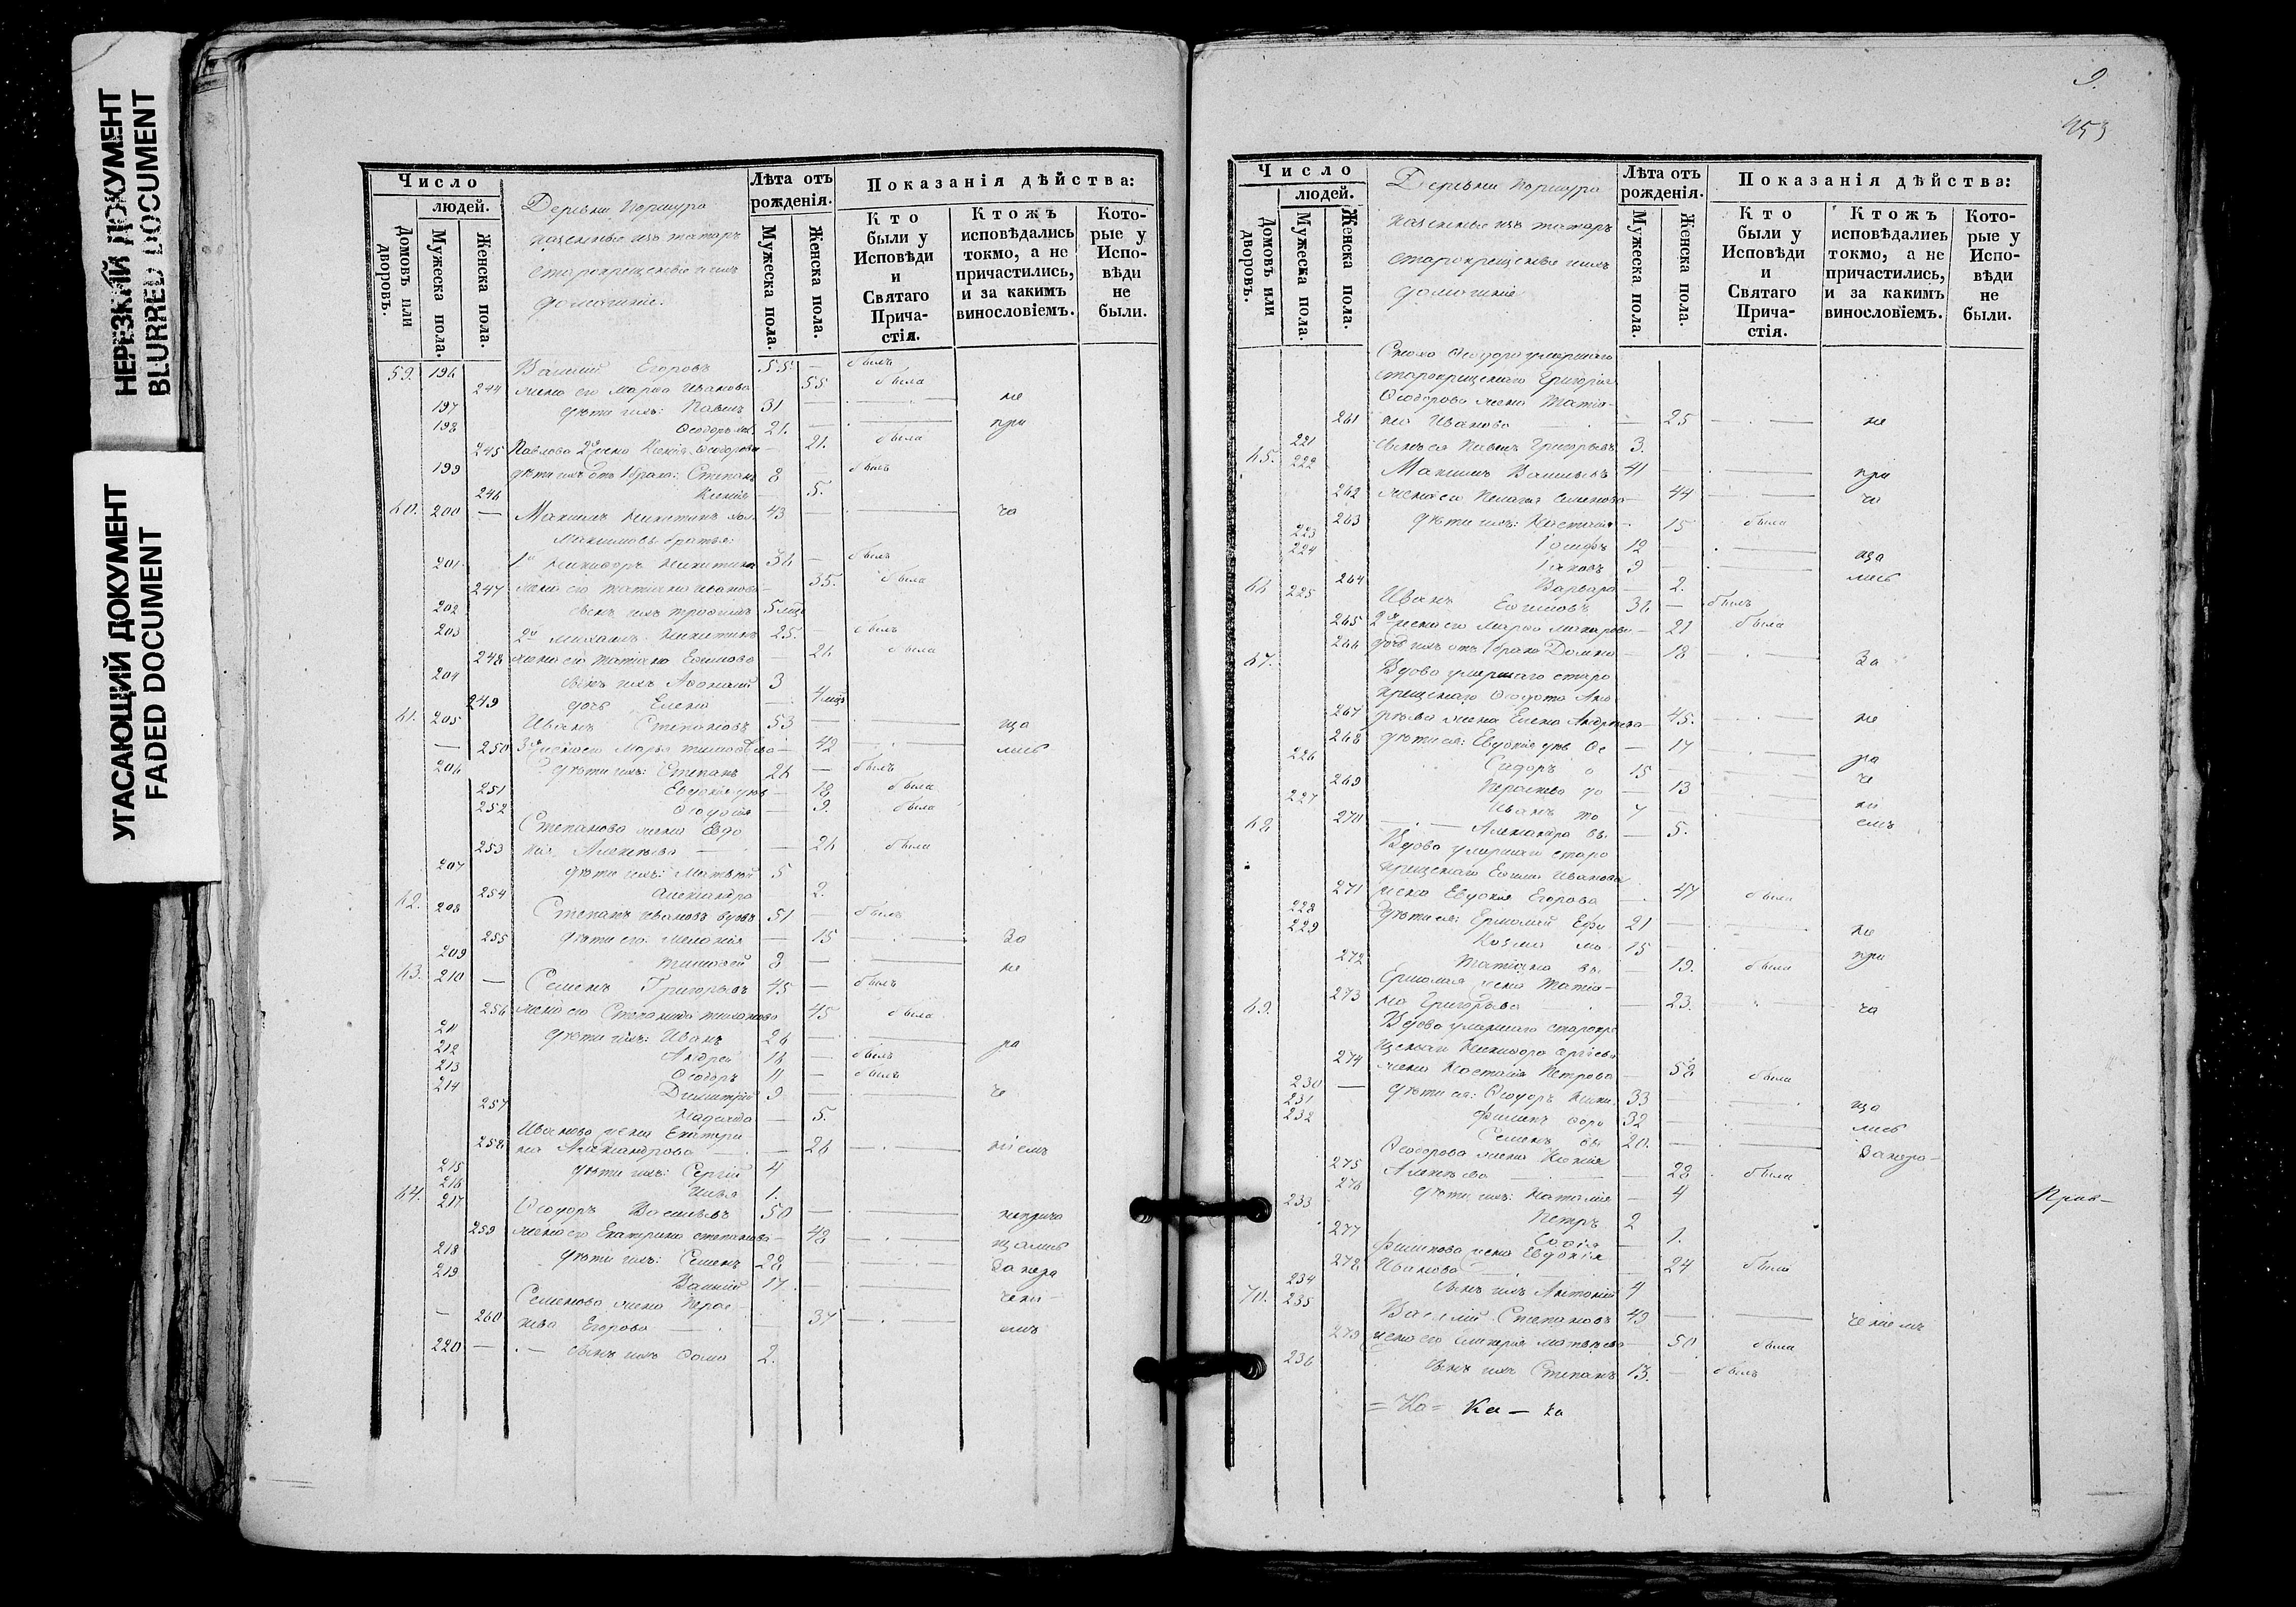 НЕРЕЗКИЙ ДОКУМЕНТ
BLURRED DOCUMENT
УГАСАЮЩИЙ ДОКУМЕНТ
FADED DOCUMENT
Число
людей.
Домовъ или дворовъ.
Мужеска пола.
Женска пола.
Деревни Поршура
казенные изъ татаръ
старокрещеные и ихъ
домашніе.
Лѣта отъ рожденія.
Мужеска пола.
Женска пола.
Показанія дѣйства:
Кто были у Исповѣди и Святаго Причастія.
Ктожъ исповѣдались токмо, а не причастились, и за какимъ винословіемъ.
Которые у Исповѣди не были.
59. 196 Василій Егоровъ 55 — былъ
244 жена его Марѳа Иванова — 55 была
197 дѣти ихъ: Павелъ 31 — не
198 Ѳеодоръ хол. 21. — при
245 Павлова 2я жена Ксенія Ѳеодорова — 21. была
199 дѣти ихъ отъ 1 брака: Степанъ 8 — былъ
246 Ксенія — 5.
60. 200 — Максимъ Никитинъ хол. 43 — ча
Максимовы братья:
201 1й Никифоръ Никитинъ 36 — былъ
247 жена его Татіана Иванова — 35. была
202 сынъ ихъ Трофимъ 5 мѣс
203 2й Михаилъ Никитинъ 25. — былъ
248 жена его Татіана Ефимова — 26 была
204 сынъ ихъ Аѳонасій 3
249 дочь Елена — 4 мѣс
61. 205 Иванъ Степановъ 53 — ща
— 250 3я жена его Марья Тимоѳѣева — 42 лись
206 дѣти ихъ: Степанъ 26 — былъ
251 Евдокія дѣв — 18 была
252 Ѳеодосія — 9. была
Степанова жена Евдо
253 кія Алексѣева — 26 была
207 дѣти ихъ: Матвѣй 5
254 Александра 2.
62. 208 Степанъ Ивановъ вдовъ 51 — былъ
255 дѣти его: Меланія — 15 За
209 Тимоѳей 8 — не
63. 210 — Семенъ Григорьевъ 45 — былъ
256 жена его Степанида Тиханова 45 была
211 дѣти ихъ: Иванъ 26 — ра
212 Андрей 18 — былъ
213 Ѳеодоръ 11 — былъ
214 Димитрій 9 — че
257 Надежда — 5.
Иванова жена Екатери
258 на Александрова — 26 ніемъ
215 дѣти ихъ: Сергій 4
216 Илья 1.
64. 217 Ѳеодоръ Васильевъ 50 — неприча
259 жена его Екатерина Степанова — 48 щались
218 дѣти ихъ: Семенъ 28 — За нера
219 Василій 17. — чені-
Семенова жена Парас-
— 260 кева Егорова — 37 емъ
220 — сынъ ихъ Ѳома 2.
9.
453
Число
людей.
Домовъ или дворовъ.
Мужеска пола.
Женска пола.
Деревни Поршура
казенные изъ татаръ
старокрещеные и ихъ
домашніе
Лѣта отъ рожденія.
Мужеска пола.
Женска пола.
Показанія дѣйства:
Кто были у Исповѣди и Святаго Причастія.
Ктожъ исповѣдались токмо, а не причастились, и за какимъ винословіемъ.
Которые у Исповѣди не были.
Сноха Ѳеодора умершаго
старокрещенаго Григорія
Ѳеодорова жена Татіа-
261 на Иванова — 25 не
221 сынъ ея Павелъ Григорьевъ 3.
65. 222 Максимъ Васильевъ 41 — при
262 жена его Пелагія Семенова — 44 ча
263 дѣти ихъ: Настасія — 15 была
223 Іосифъ 12 — ща
224 Іаковъ 9 — лись
264 Варвара — 2.
66 225 Иванъ Ефимовъ 36 — былъ
265 2я жена его Марѳа Макарова — 21 была
266 дочь ихъ отъ 1 брака Домна — 18 За
67. Вдова умершаго старо
крещенаго Ѳедота Анд
267 рѣева жена Елена Андреева — 45. не
268 дѣти ея: Евдокія дѣв Ѳе — 17
226 Сидоръ о 15 — ра
269 Парасева до — 13 че
227 Иванъ то 7 — ні
270 — Александра вы — 5. емъ
68 Вдова умершаго старо
крещенаго Ефима Иванова
271 жена Евдокія Егорова — 47 была
228 дѣти ея: Ермолай Ефи 21 — не
229 Козма мо 15 — при
272 Татіана вы — 19. была
Ермолая жена Татіа-
273 на Григорьева — 23. ча
69. Вдова умершаго старокре
щенаго Никифора Сергѣева
274 жена Настасія Петрова — 58 была
230 — дѣти ея: Ѳеодоръ Ники. 33 — ща
231 Филипъ форо 32 — лись
232 Семенъ вы 20. — Занера-
Ѳеодорова жена Ксенія
275 Алексѣева — 28 была
276 дѣти ихъ: Наталія — 4
233 Петръ 2
277 Софія — 1.
Филипова жена Евдокія
278 Иванова — 24 была
234 сынъ ихъ Антоній 4
70. 235 Василій Степановъ 49 — ченіемъ
279 жена его Гликерія Матвѣева — 50 была
236 сынъ ихъ Степанъ 13. — былъ
=Ка= Ка — за